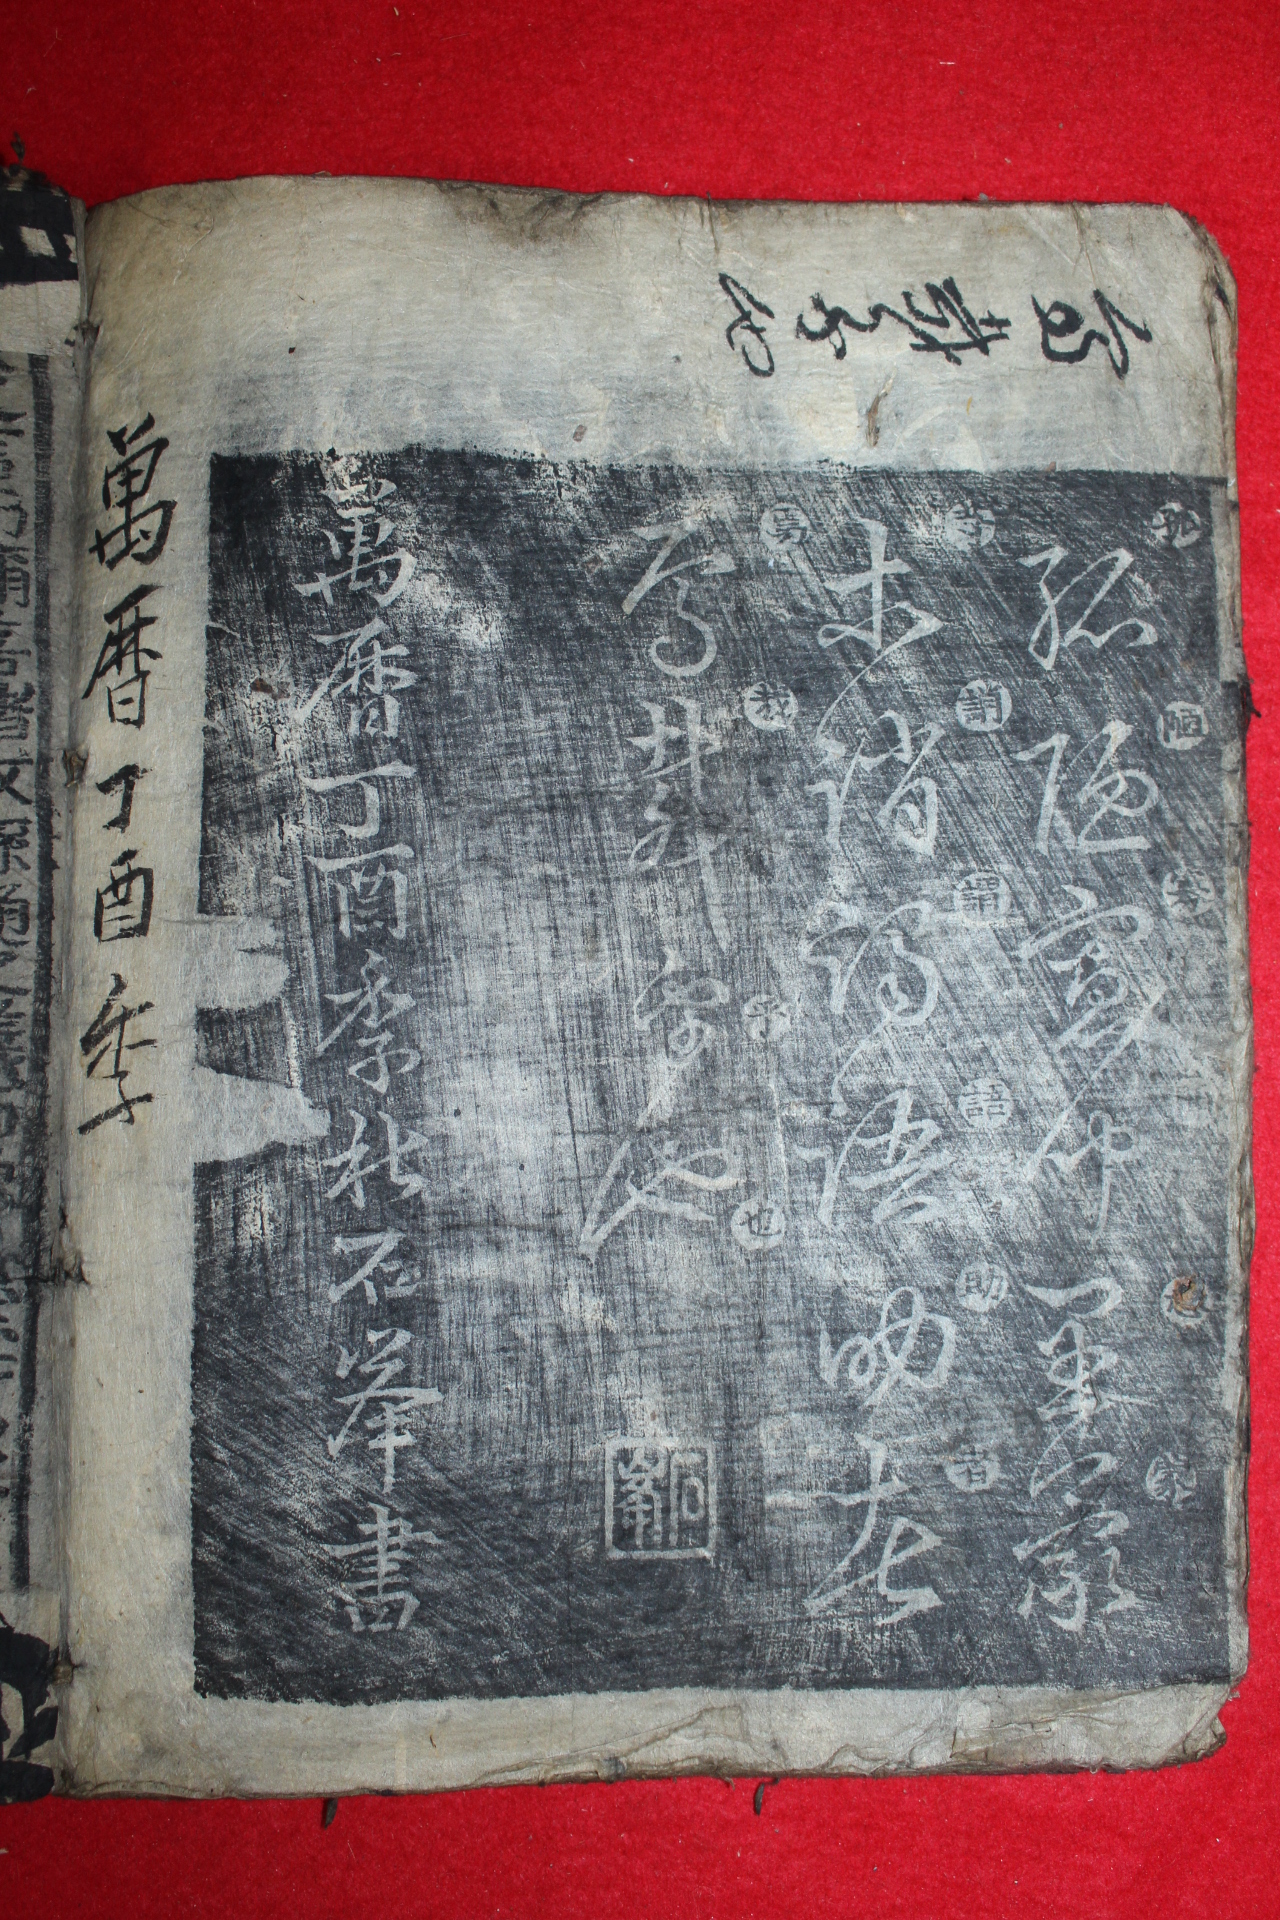 孤陋寡聞愚蒙
孤陋寡聞愚蒙
等誚謂語助者
等誚謂語助者
焉哉乎也
焉哉乎也
石峯
萬曆丁酉季秋石峯書
萬曆丁酉季